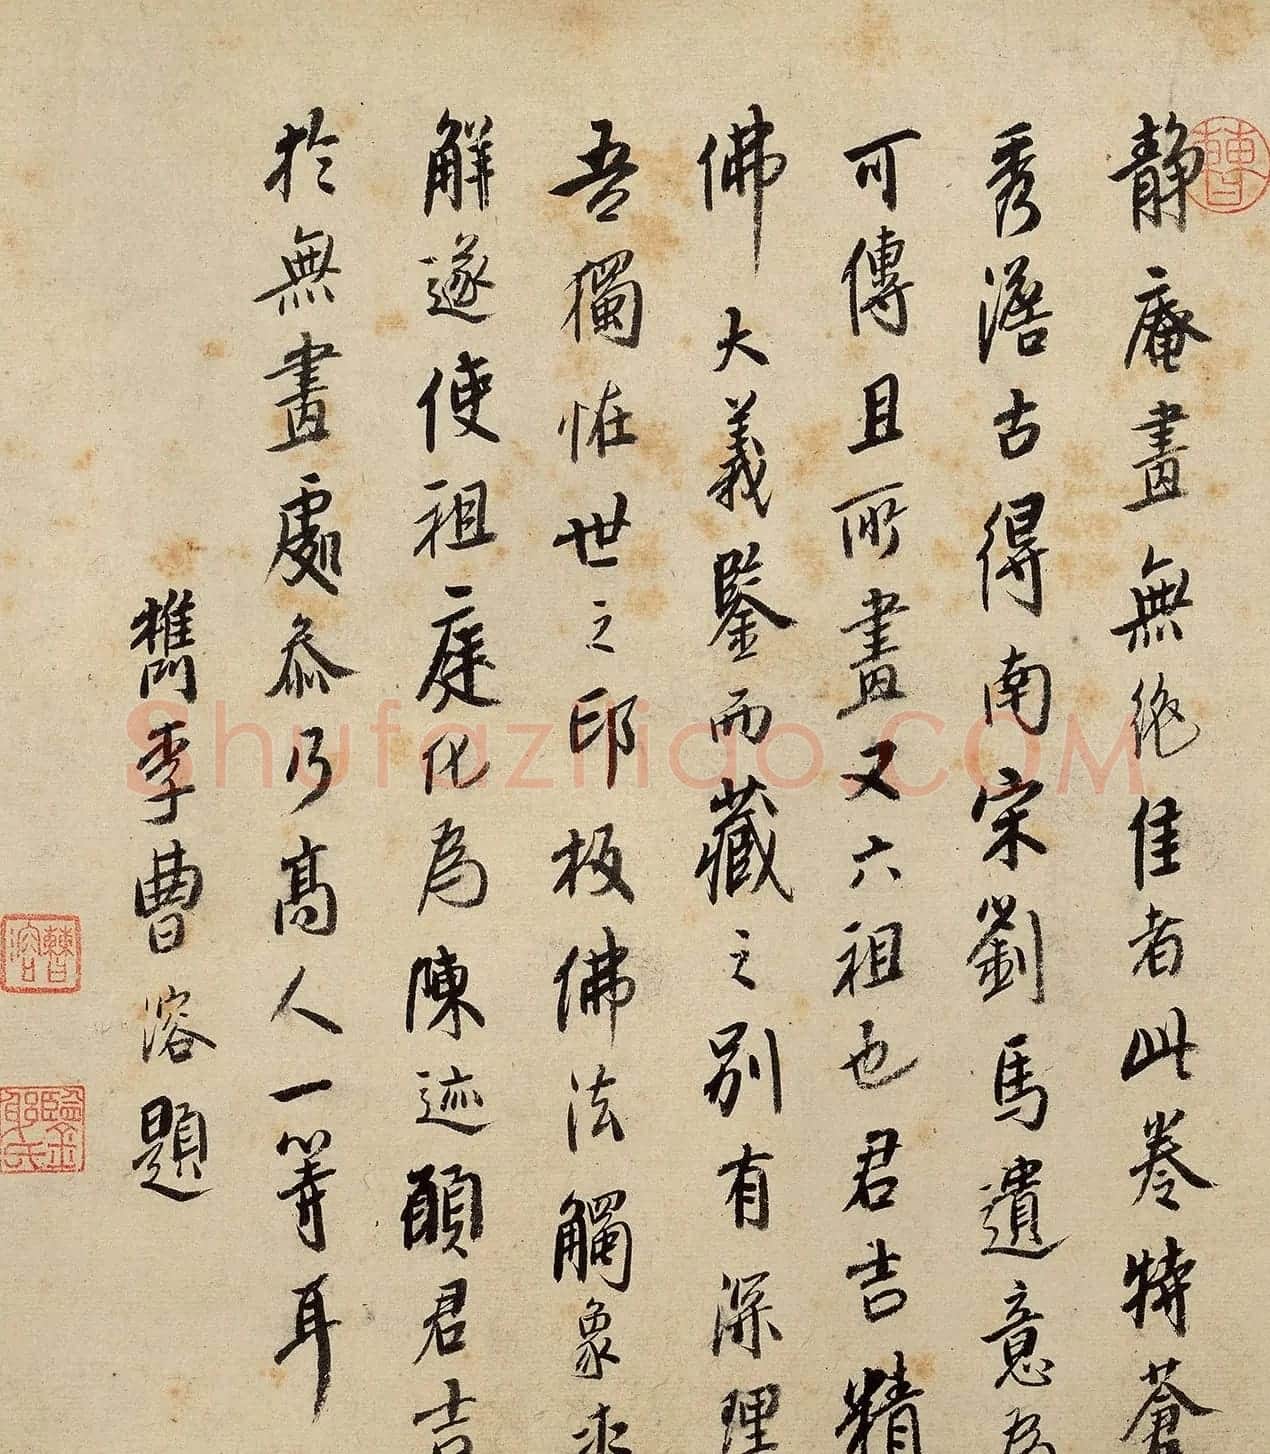 靜庵畫無絕佳者此卷特蒼
秀澹古得南宋劉馬遺意為
可傳且所畫又六祖也君吉精
佛大義鑒而藏之別有深理
吾獨怪世之印板佛法觸象求
解遂使祖庭化為陳迹願君吉
於無畫處參乃高人一等耳
檇李曹溶題
曹溶
Shufazidao.COM